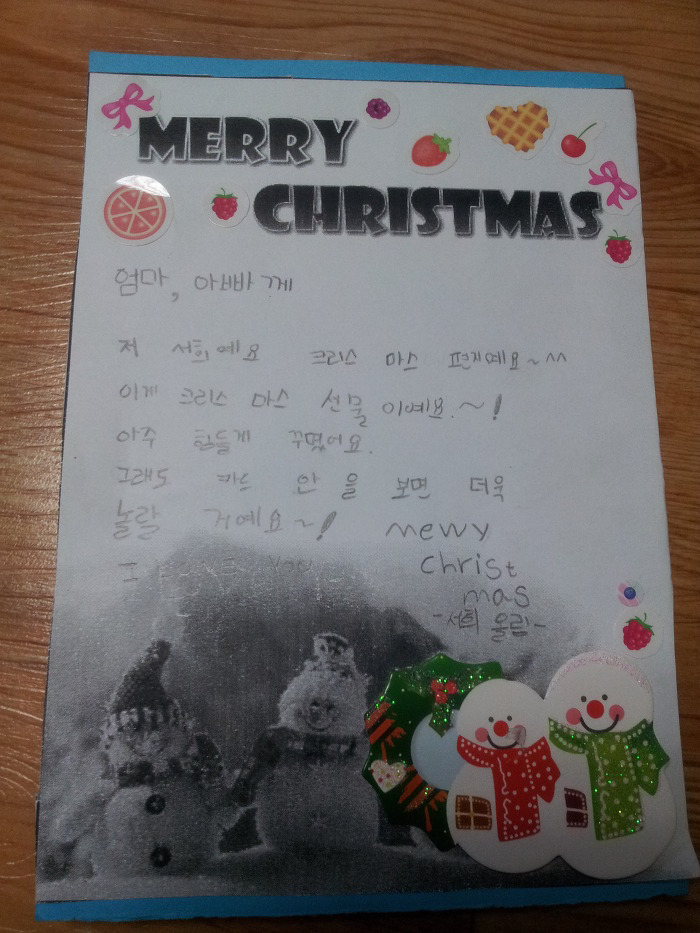 MERRY
CHRISTMAS
엄마, 아빠께
저 서희예요 크리스 마스 편지예요~^^
이게 크리스 마스 선물 이예요.~!
아주 힘들게 꾸몄어요.
그래도 카드 안 을 보면 더욱
놀랄 거예요~! Merry
I Love You Christ
mas
-서희 올림-